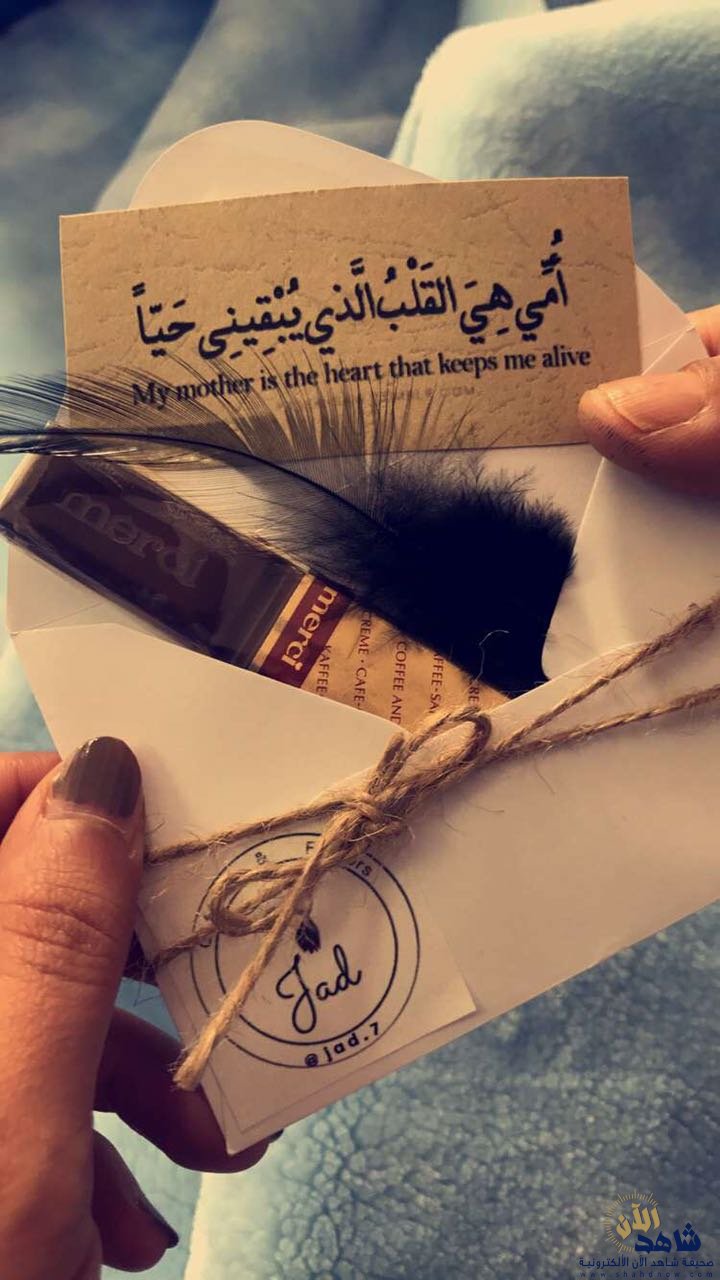 أُمِّي هِيَ القَلْبُ الَّذي يُبْقِينِي حَيّاً
My mother is the heart that keeps me alive
merci
merci
Jad
@jad.7
شاهد الآن
صحيفة شاهد الآن الالكترونية
www.shahdnow.com